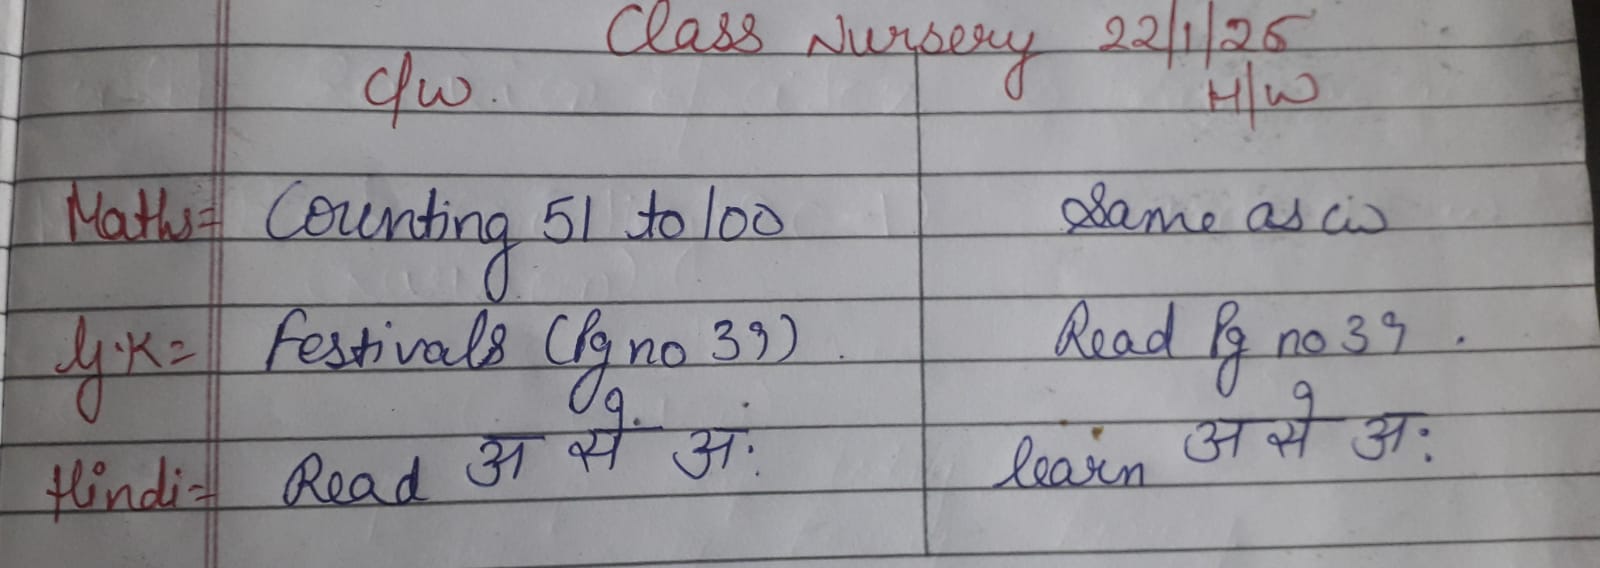 Class Nursery 22/1/26
C/W. H/W
Maths= Counting 51 to 100 Same as cw
G.K= Festivals (Pg no 39). Read Pg no 39.
Hindi= Read अ से अः learn अ से अः